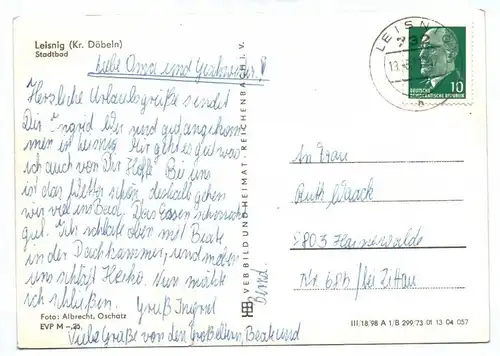 Leisnig (Kr. Döbeln)
Stadtbad
Liebe Oma und Geschwister!
Herzliche Urlaubsgrüße sendet
Dir Ingrid. Wir sind gut angekommen
in Leisnig. Mir geht es gut was
ich auch von Dir Hoffe. Bei uns
ist das Wetter schön, deshalb gehen
wir viel ins Bad. Das Essen schmeckt
gut. Ich schlafe oben mit Beate
in der Dachkammer, und neben
uns schläft Heiko. Nun möchte
ich schließen. Gruß Ingrid
Viele Grüße von den Großeltern, Beate und
Bernd.
Foto: Albrecht, Oschatz
EVP M –,25
VERBILD UND HEIMAT · REICHENBACH I. V.
LEISN
732
13.
a
10
DEUTSCHE
DEMOKRATISCHE REPUBLIK
An Frau
Ruth Waack
8803 Hainewalde
Nr. 68b/bei Zittau
III/18/98 A 1/B 299/73 01 13 04 057